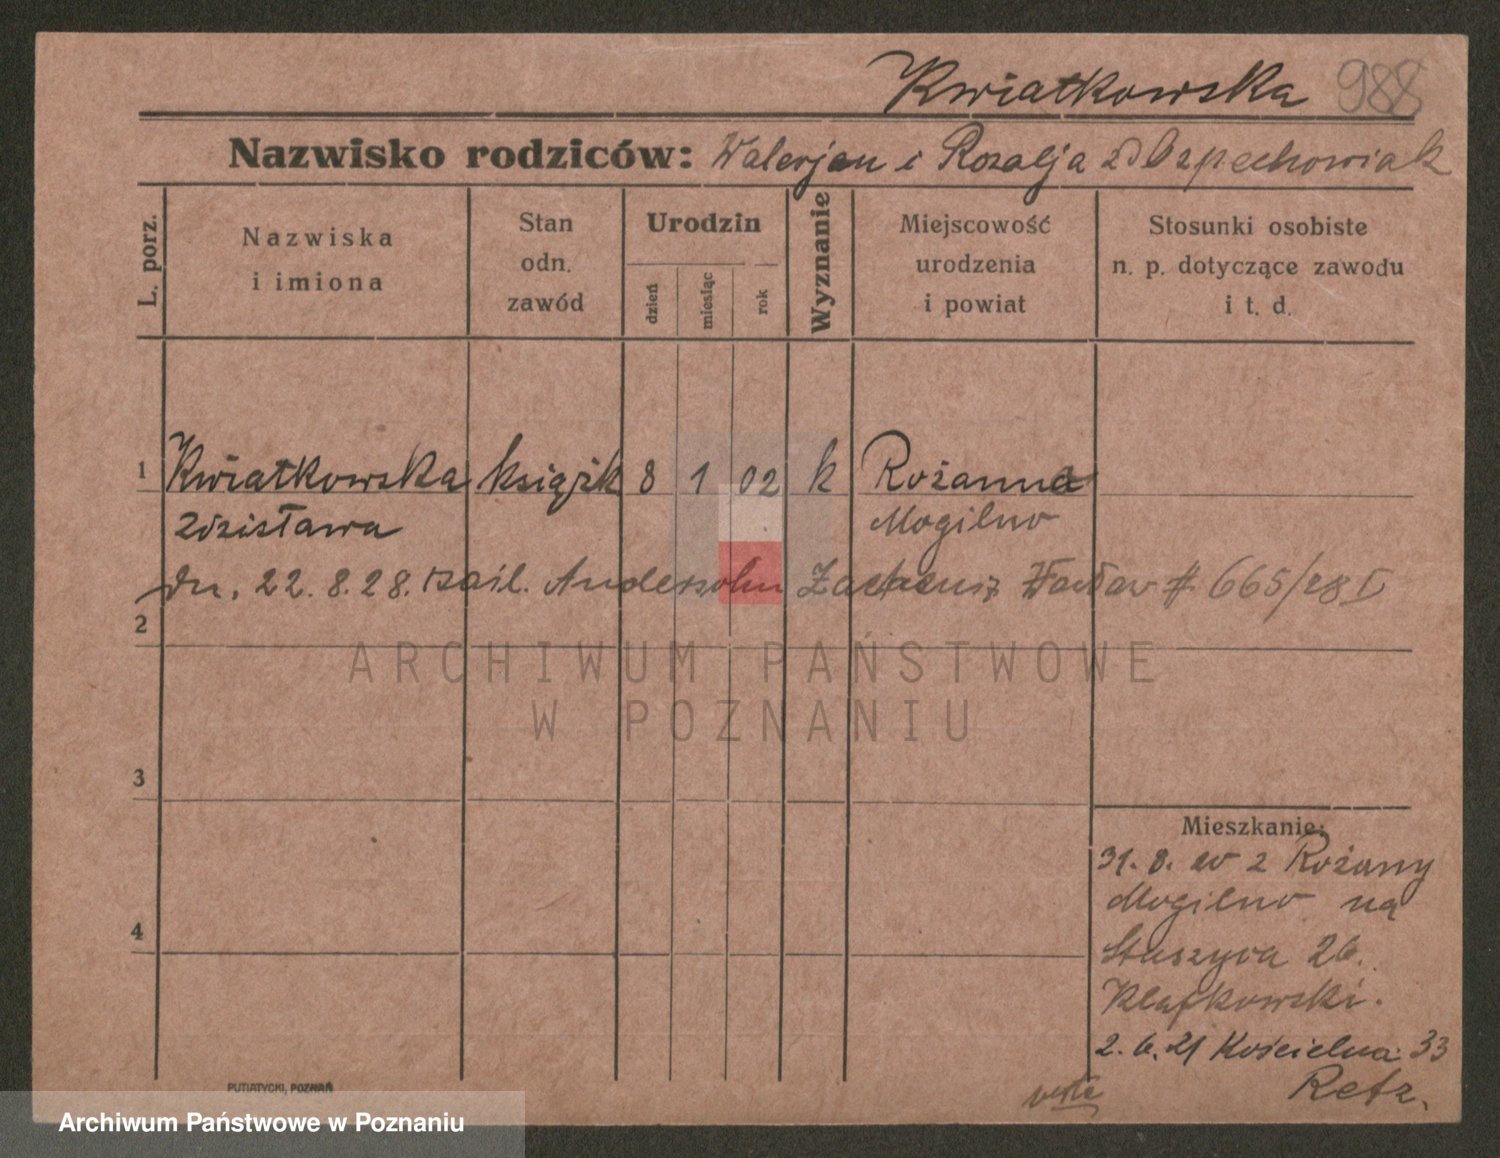 Kwiatkowska 988
Nazwisko rodziców: Walerjan i Rozalja
L. porz.
Nazwiska
i imiona
Stan
odn.
zawód
Urodzin
dzień
miesiąc
rok
Wyznanie
Miejscowość
urodzenia
i powiat
Stosunki osobiste
n. p. dotyczące zawodu
i t. d.
1 Kwiatkowska książk 8 1 02 k Rożanna
Zdzisława Mogilno
dn. 22.8.28. Andersohn Wacław # 665/28 I
2
ARCHIWUM PAŃSTWOWE
W POZNANIU
3
Mieszkanie:
31. 8. 20 z Rożany
Mogilno na
4
Staszyca 26.
Klafkowski.
2. 6. 21 Kościelna 33
Retz.
verte
PUTIATYCKI, POZNAŃ
Archiwum Państwowe w Poznaniu